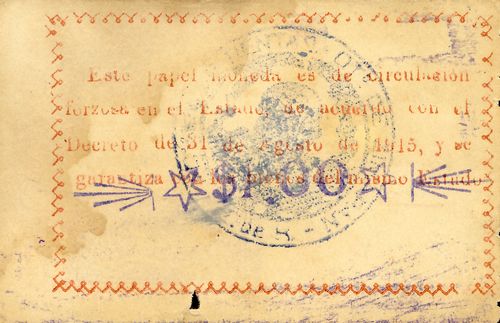 Este papel moneda es de circulación
forzosa en el Estado, de acuerdo con el
Decreto de 31 de Agosto de 1915, y se
garantiza con los bienes del mismo Estado.
$1.00